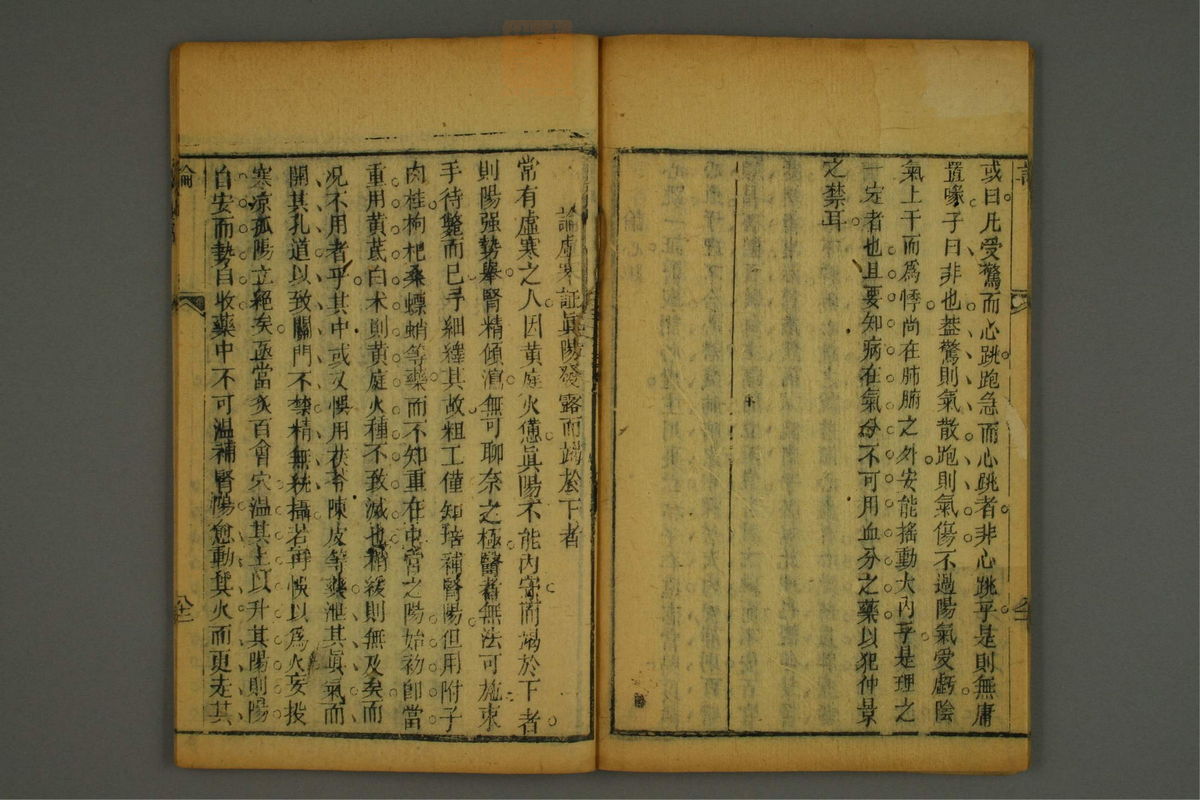 或曰凡受驚而心跳跑急而心跳者非心跳乎是則無庸
置喙子曰非也葢驚則氣散跑則氣傷不過陽氣受虧陰
氣上干而爲悸尚在肺腑之外安能搖動大內乎是理之
一定者也且要知病在氣分不可用血分之藥以犯仲景
之禁耳
論虛寒証眞陽發露而竭於下者
常有虛寒之人因黄庭火憊眞陽不能內守而竭於下者
則陽强勢舉腎精傾瀉無可聊奈之極醫者無法可施束
手待斃而已予細繹其故粗工僅知培補腎陽但用附子
肉桂枸杞桑螵蛸等藥而不知重在中宮之陽始初卽當
重用黄茋白术則黄庭火種不致滅也稍緩則無及矣而
况不用者乎其中或又悞用茯苓陳皮等藥泄其眞氣而
開其孔道以致關門不禁精無統攝若再悞以爲火妄投
寒凉孤陽立絕矣亟當灸百會穴温其上以升其陽則陽
自安而勢自收藥中不可温補腎陽愈動其火而更走其
論